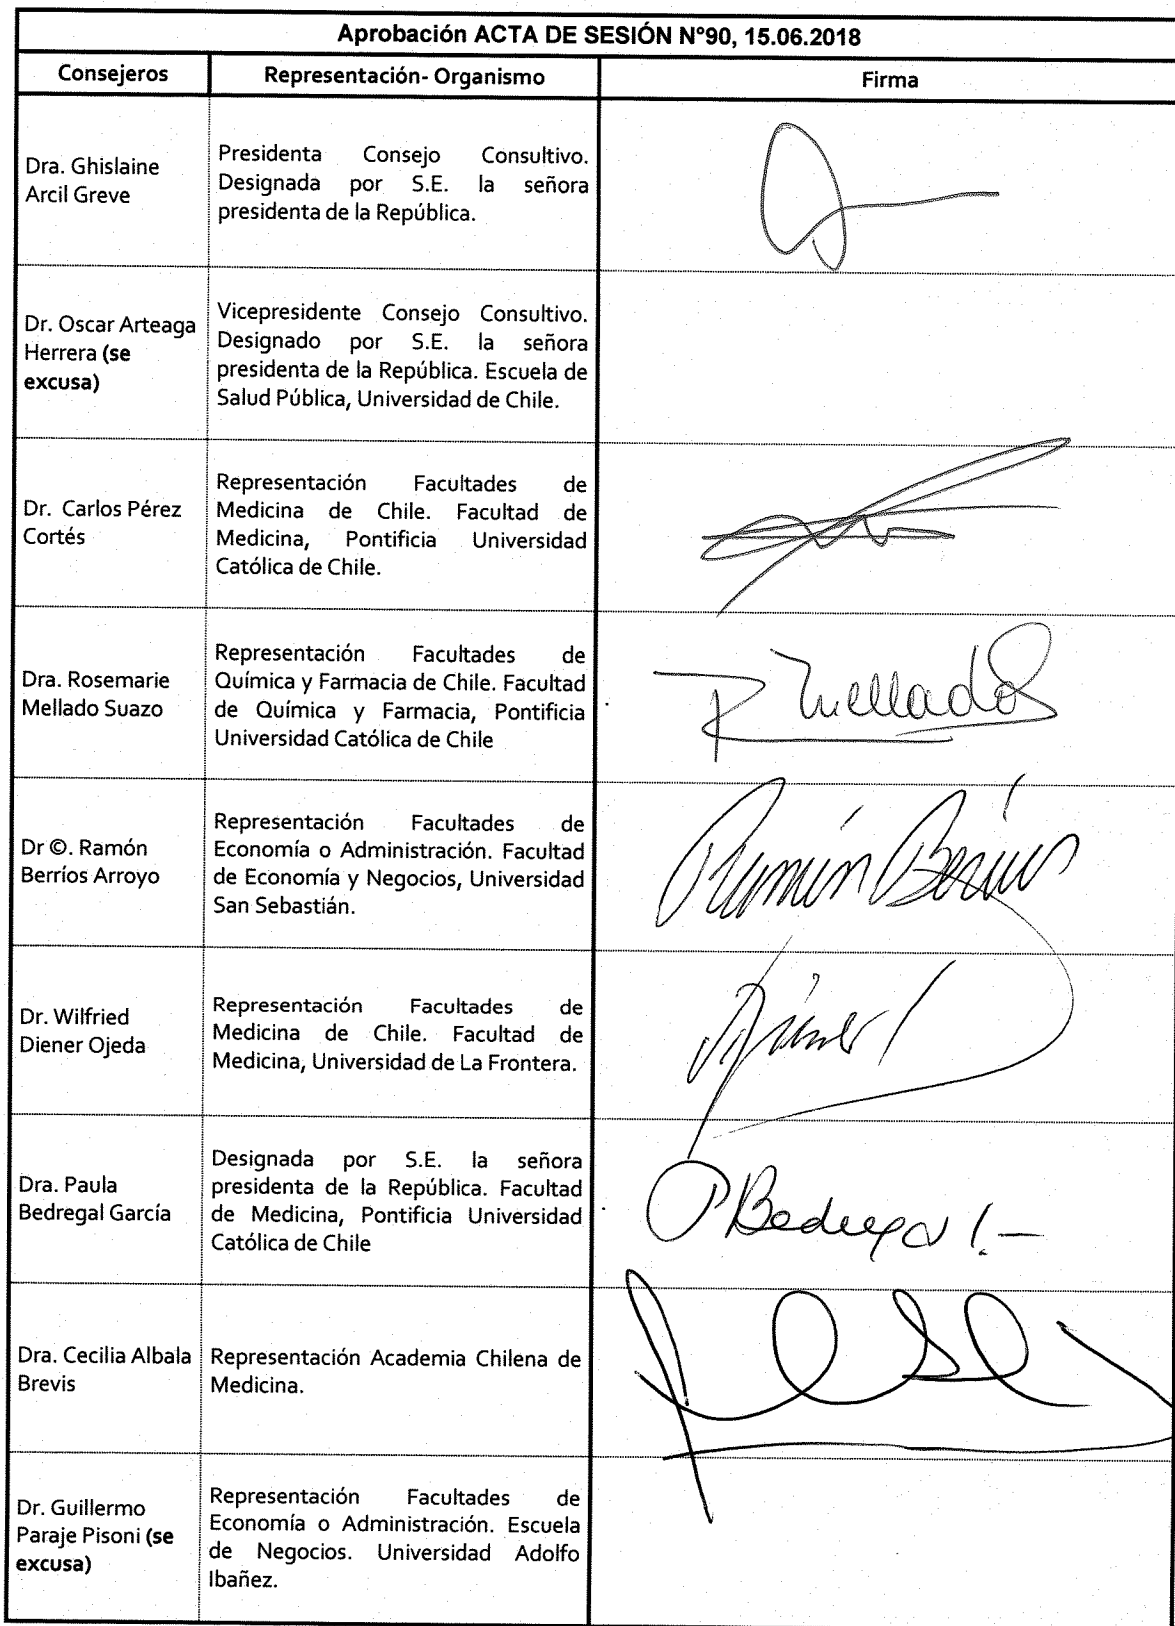 Aprobación ACTA DE SESIÓN N°90, 15.06.2018
Consejeros
Representación- Organismo
Firma
Dra. Ghislaine
Arcil Greve
Presidenta Consejo Consultivo.
Designada por S.E. la señora
presidenta de la República.
Dr. Oscar Arteaga
Herrera (se
excusa)
Vicepresidente Consejo Consultivo.
Designado por S.E. la señora
presidenta de la República. Escuela de
Salud Pública, Universidad de Chile.
Dr. Carlos Pérez
Cortés
Representación Facultades de
Medicina de Chile. Facultad de
Medicina, Pontificia Universidad
Católica de Chile.
Dra. Rosemarie
Mellado Suazo
Representación Facultades de
Química y Farmacia de Chile. Facultad
de Química y Farmacia, Pontificia
Universidad Católica de Chile
R Mellado
Dr ©. Ramón
Berríos Arroyo
Representación Facultades de
Economía o Administración. Facultad
de Economía y Negocios, Universidad
San Sebastián.
Ramón Berríos
Dr. Wilfried
Diener Ojeda
Representación Facultades de
Medicina de Chile. Facultad de
Medicina, Universidad de La Frontera.
Diener
Dra. Paula
Bedregal García
Designada por S.E. la señora
presidenta de la República. Facultad
de Medicina, Pontificia Universidad
Católica de Chile
P Bedregal
Dra. Cecilia Albala
Brevis
Representación Academia Chilena de
Medicina.
Dr. Guillermo
Paraje Pisoni (se
excusa)
Representación Facultades de
Economía o Administración. Escuela
de Negocios. Universidad Adolfo
Ibañez.